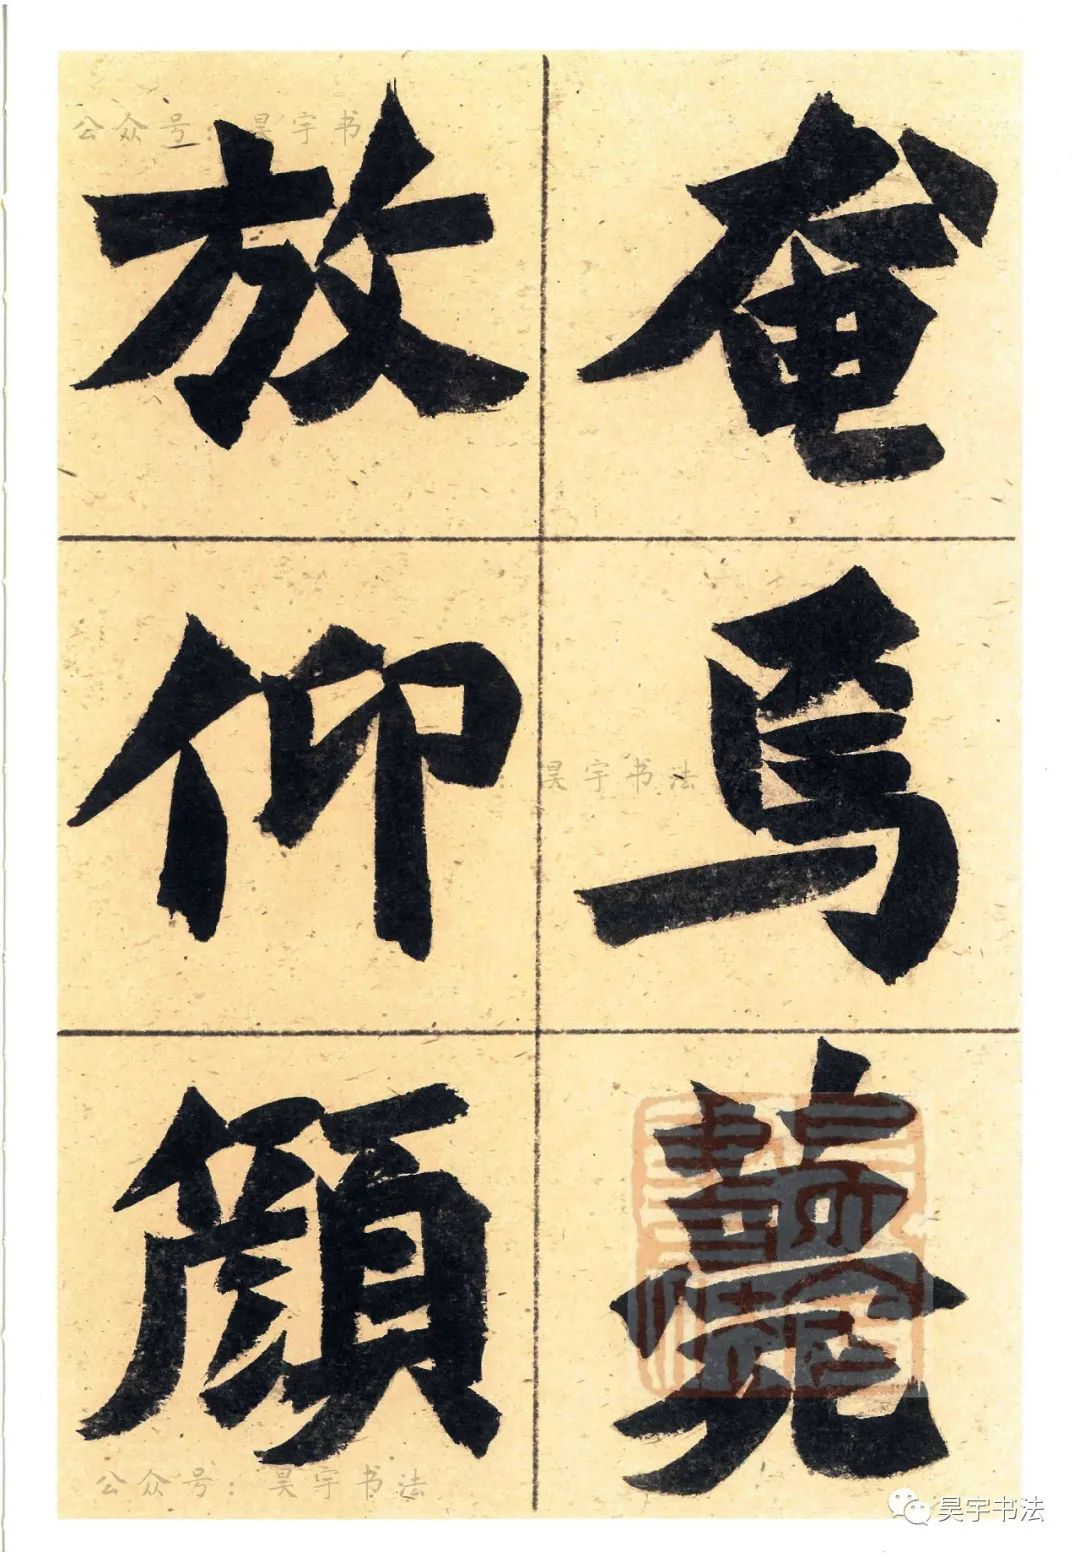 奄焉薨
放仰顏
公众号：昊宇书
昊宇书法
公众号：昊宇书法
昊宇书法